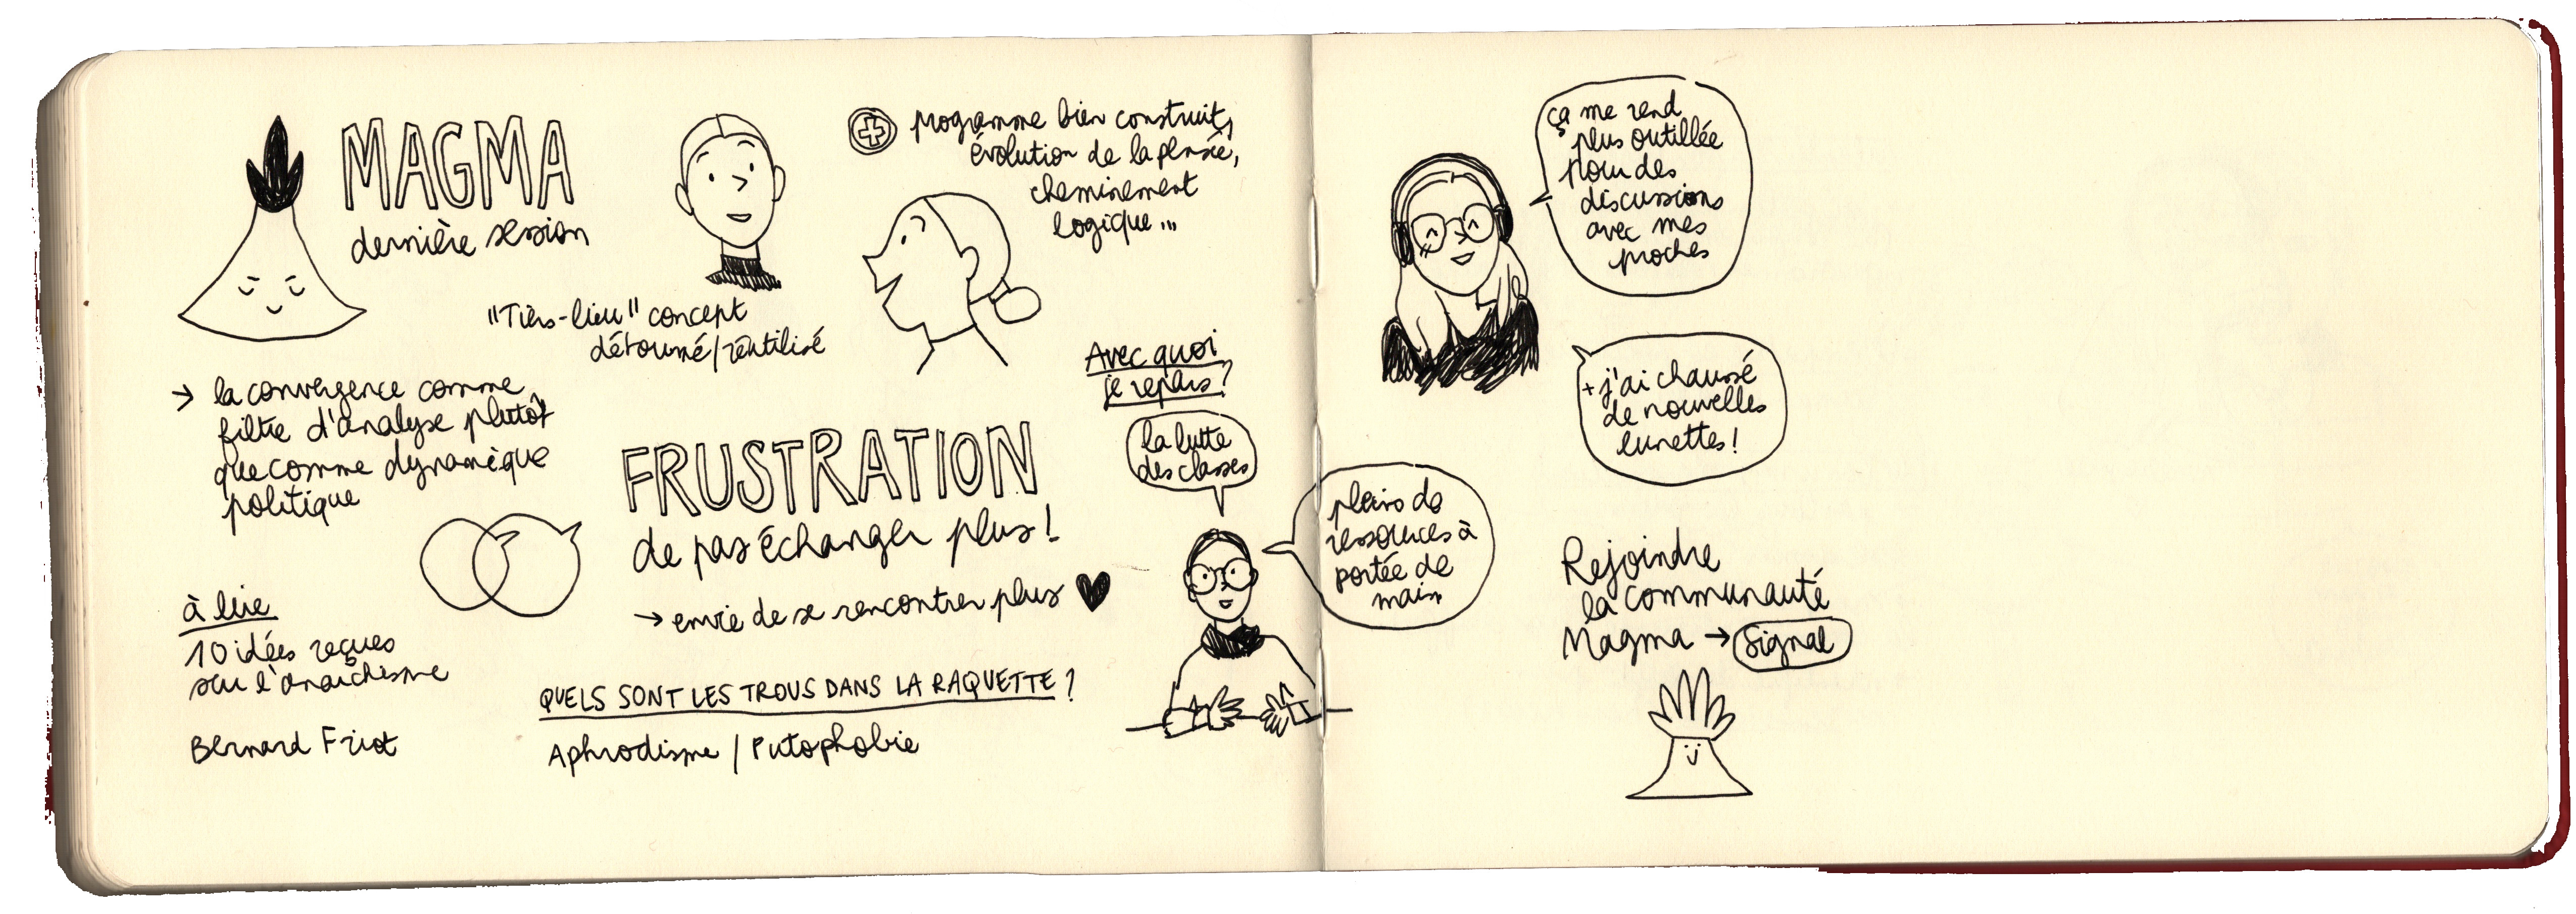 MAGMA
dernière session
"Tiers-lieu" concept
détourné/réutilisé
programme bien construit,
évolution de la pensée,
cheminement
logique...
→ la convergence comme
filtre d'analyse plutôt
que comme dynamique
politique
FRUSTRATION
de pas échanger plus !
→ envie de se rencontrer plus
à lire
10 idées reçues
sur l'anarchisme
Bernard Friot
QUELS SONT LES TROUS DANS LA RAQUETTE ?
Aphrodisme / Putophobie
Avec quoi
je repars ?
la lutte
des classes
pleins de
ressources à
portée de
main
ça me rend
plus outillée
pour des
discussions
avec mes
proches
+ j'ai chaussé
de nouvelles
lunettes !
Rejoindre
la communauté
Magma → Signal